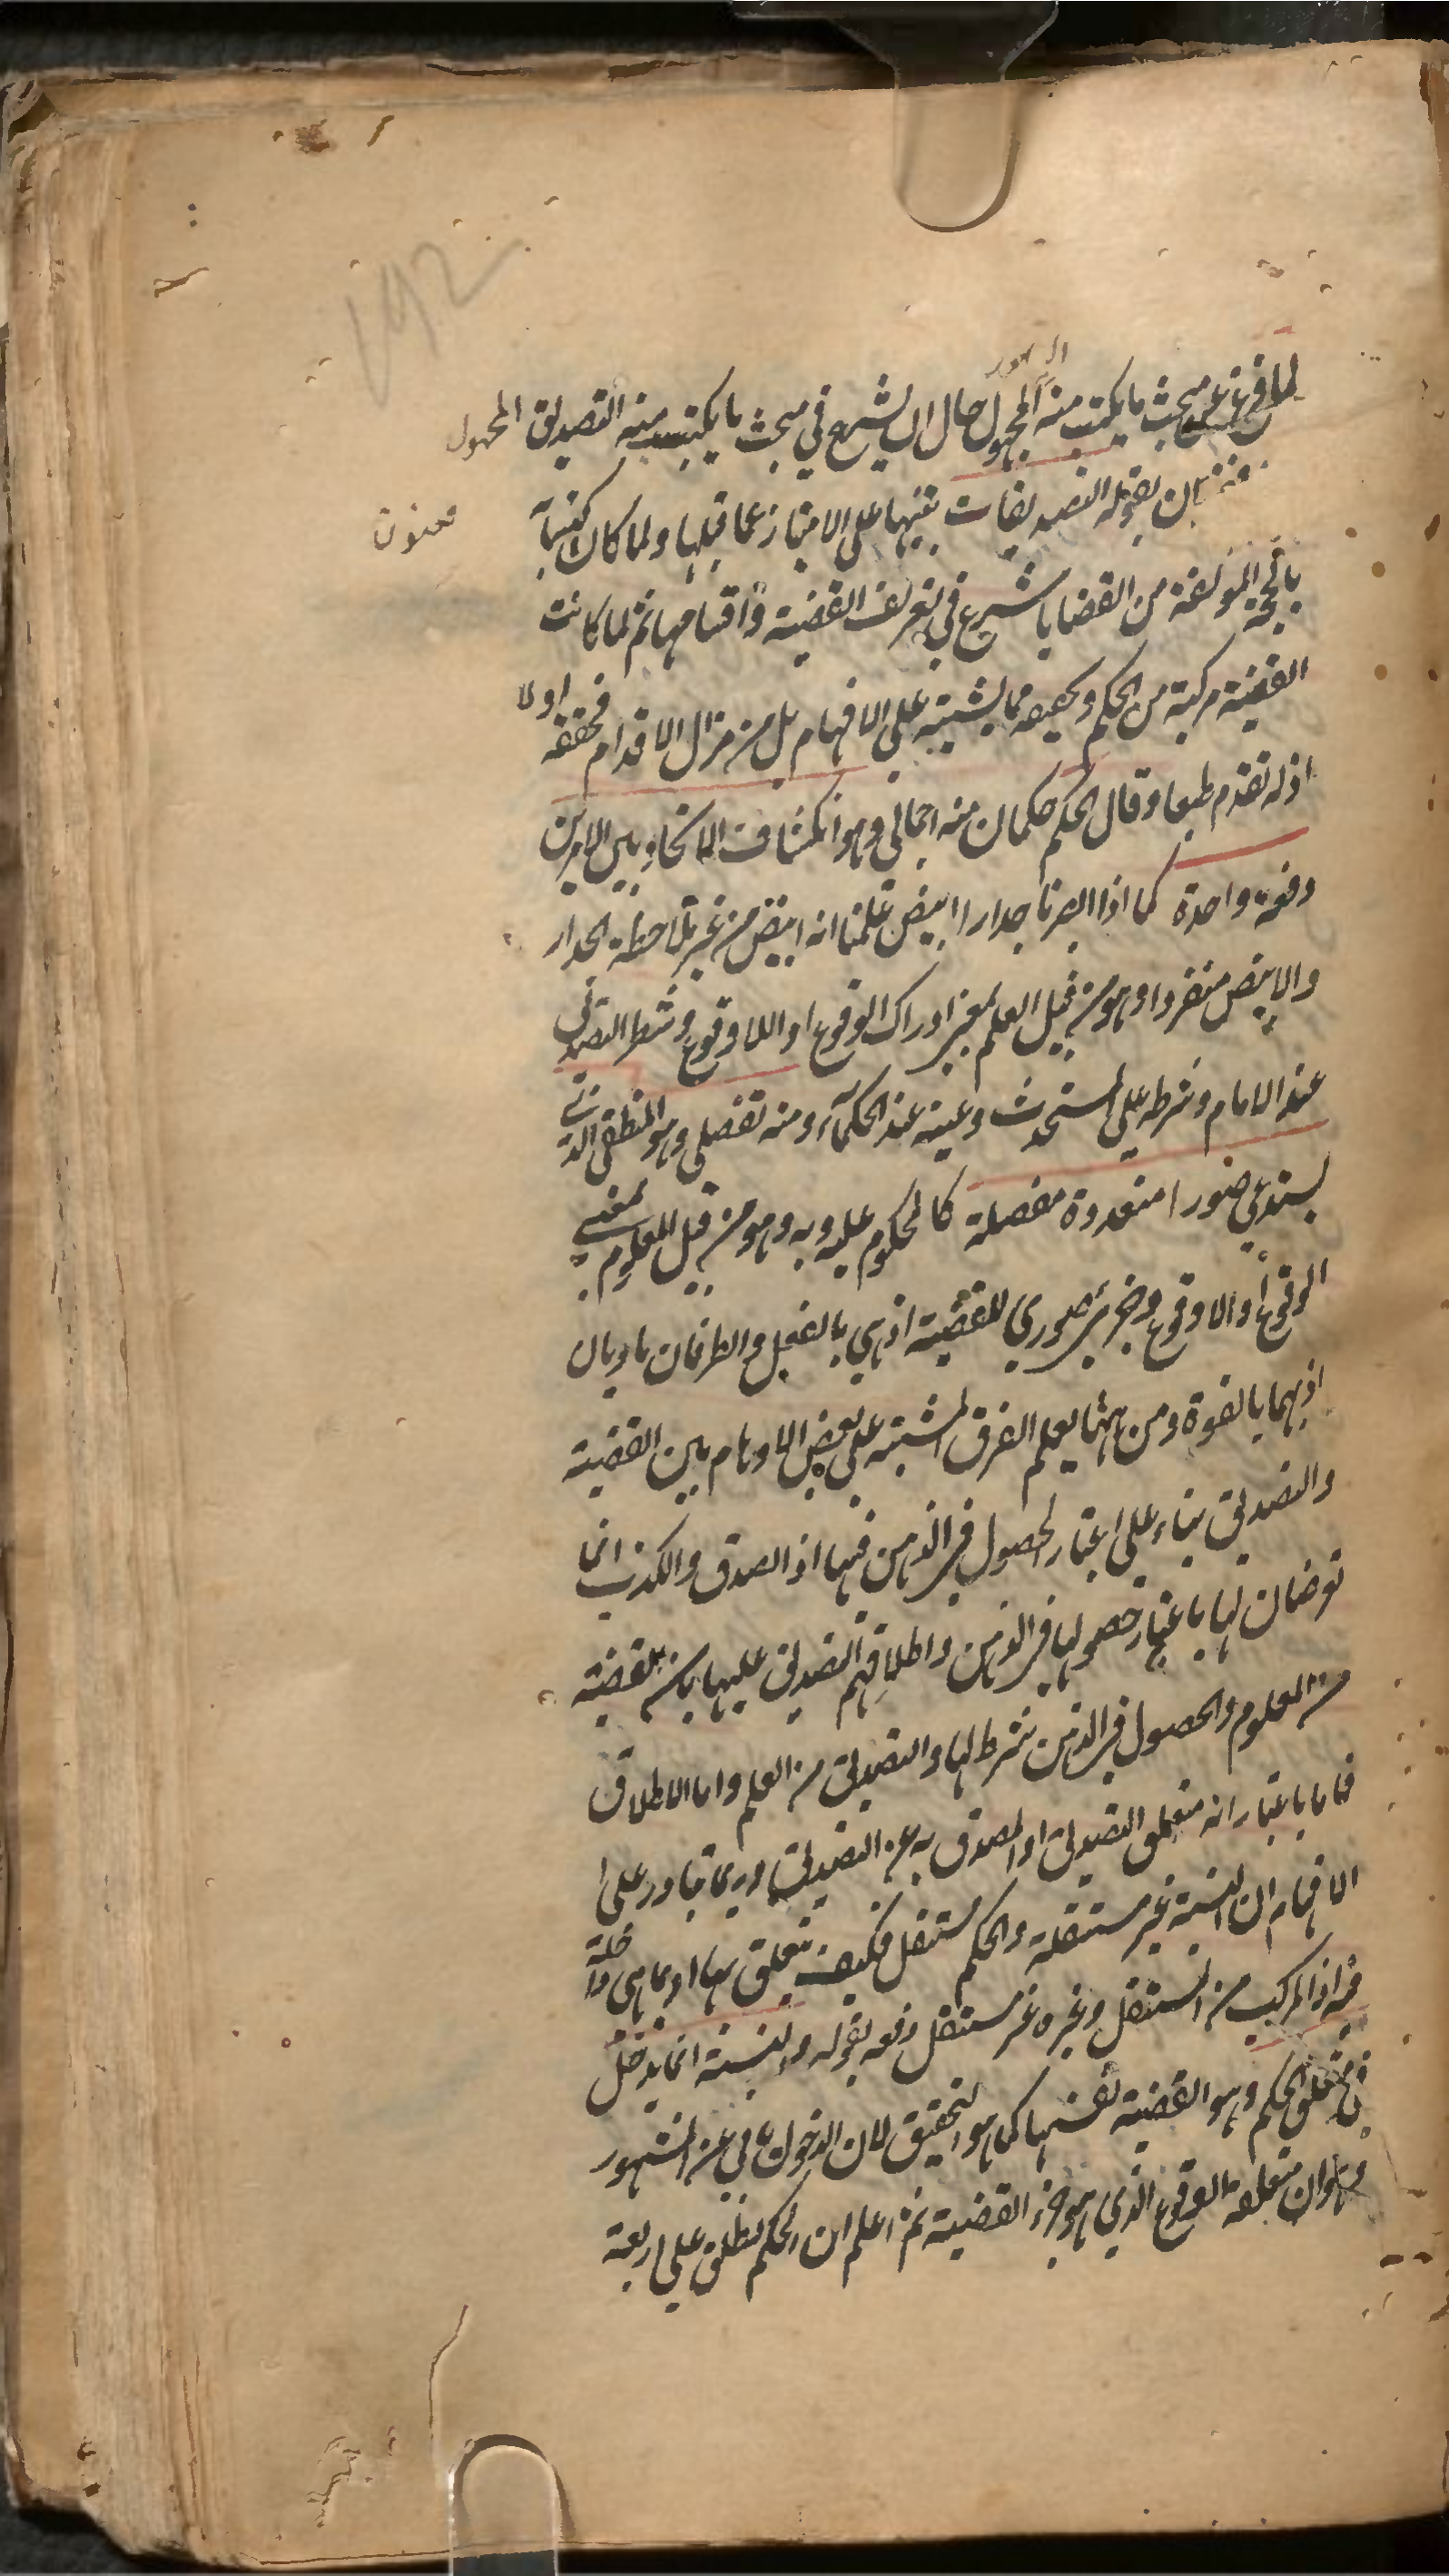 ١٩٢
لما فرغ عن مبحث ما يكتسب منه المجهول حال ان يشرع في مبحث ما يكتسب منه التصديق المجهول
بقوله التصديقات تنبيها على الامتياز عما قبلها ولما كان كتسابه
معنون
بالحجة المؤلفة من القضايا شرع في تعريف القضية واقسامها ثم لما كانت
القضية مركبة من الحكم وكيفيه مما يشتبه على الافهام بل من مزال الاقدام فحققه اولا
اذ له تقدم طبعا وقال الحكم حكمان منه اجمالي وهو انكشاف الاتحاد بين الامرين
دفعة واحدة كما اذا ابصرنا جدارا ابيض علمنا انه ابيض من غير ملاحظة الجدار
والابيض منفردا وهو من قبيل العلم بمعنى ادراك الوقوع او اللا وقوع وشطر التصديق
عند الامام وشرطه على المستحدث وعينه عند الحكماء ومنه تفصيلي وهو المنطقي الذي
يستدعي صورا متعددة مفصلة كالمحكوم عليه وبه وهو من قبيل المعلوم بمعنى
الوقوع او اللاوقوع وجزء صوري للقضية اذ هي بالفعل والطرفان ماديان
اذ بهما بالقوة ومن ههنا يعلم الفرق المشتبه على بعض الاوهام بين القضية
والتصديق بناء على اعتبار الحصول في الذهن فيها اذ الصدق والكذب انما
تعرضان لها باعتبار حصولها في الذهن واطلاقهم التصديق عليها بان القضية
من المعلوم والحصول في الذهن شرط لها والتصديق من العلم واما الاطلاق
فاما باعتبار انه متعلق التصديق او المصدق به عن التصديق وربما يتبادر على
الافهام ان النسبة غير مستقلة والحكم مستقل فكيف يتعلق بها او بما هي داخلة
فيه اذ المركب من المستقل وغيره غير مستقل دفعه بقوله والنسبة انما يدخل
في متعلق الحكم وهو القضية نفسها كما هو التحقيق لان الدخول ينافي عن المشهور
وهو ان متعلقه الوقوع الذي هو جزء القضية ثم اعلم ان الحكم يطلق على اربعة